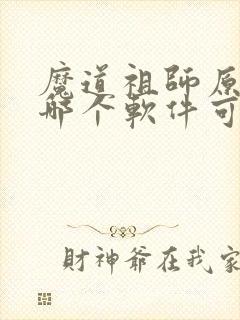 魔道祖師原
哪个軟件可
財神爺在我家